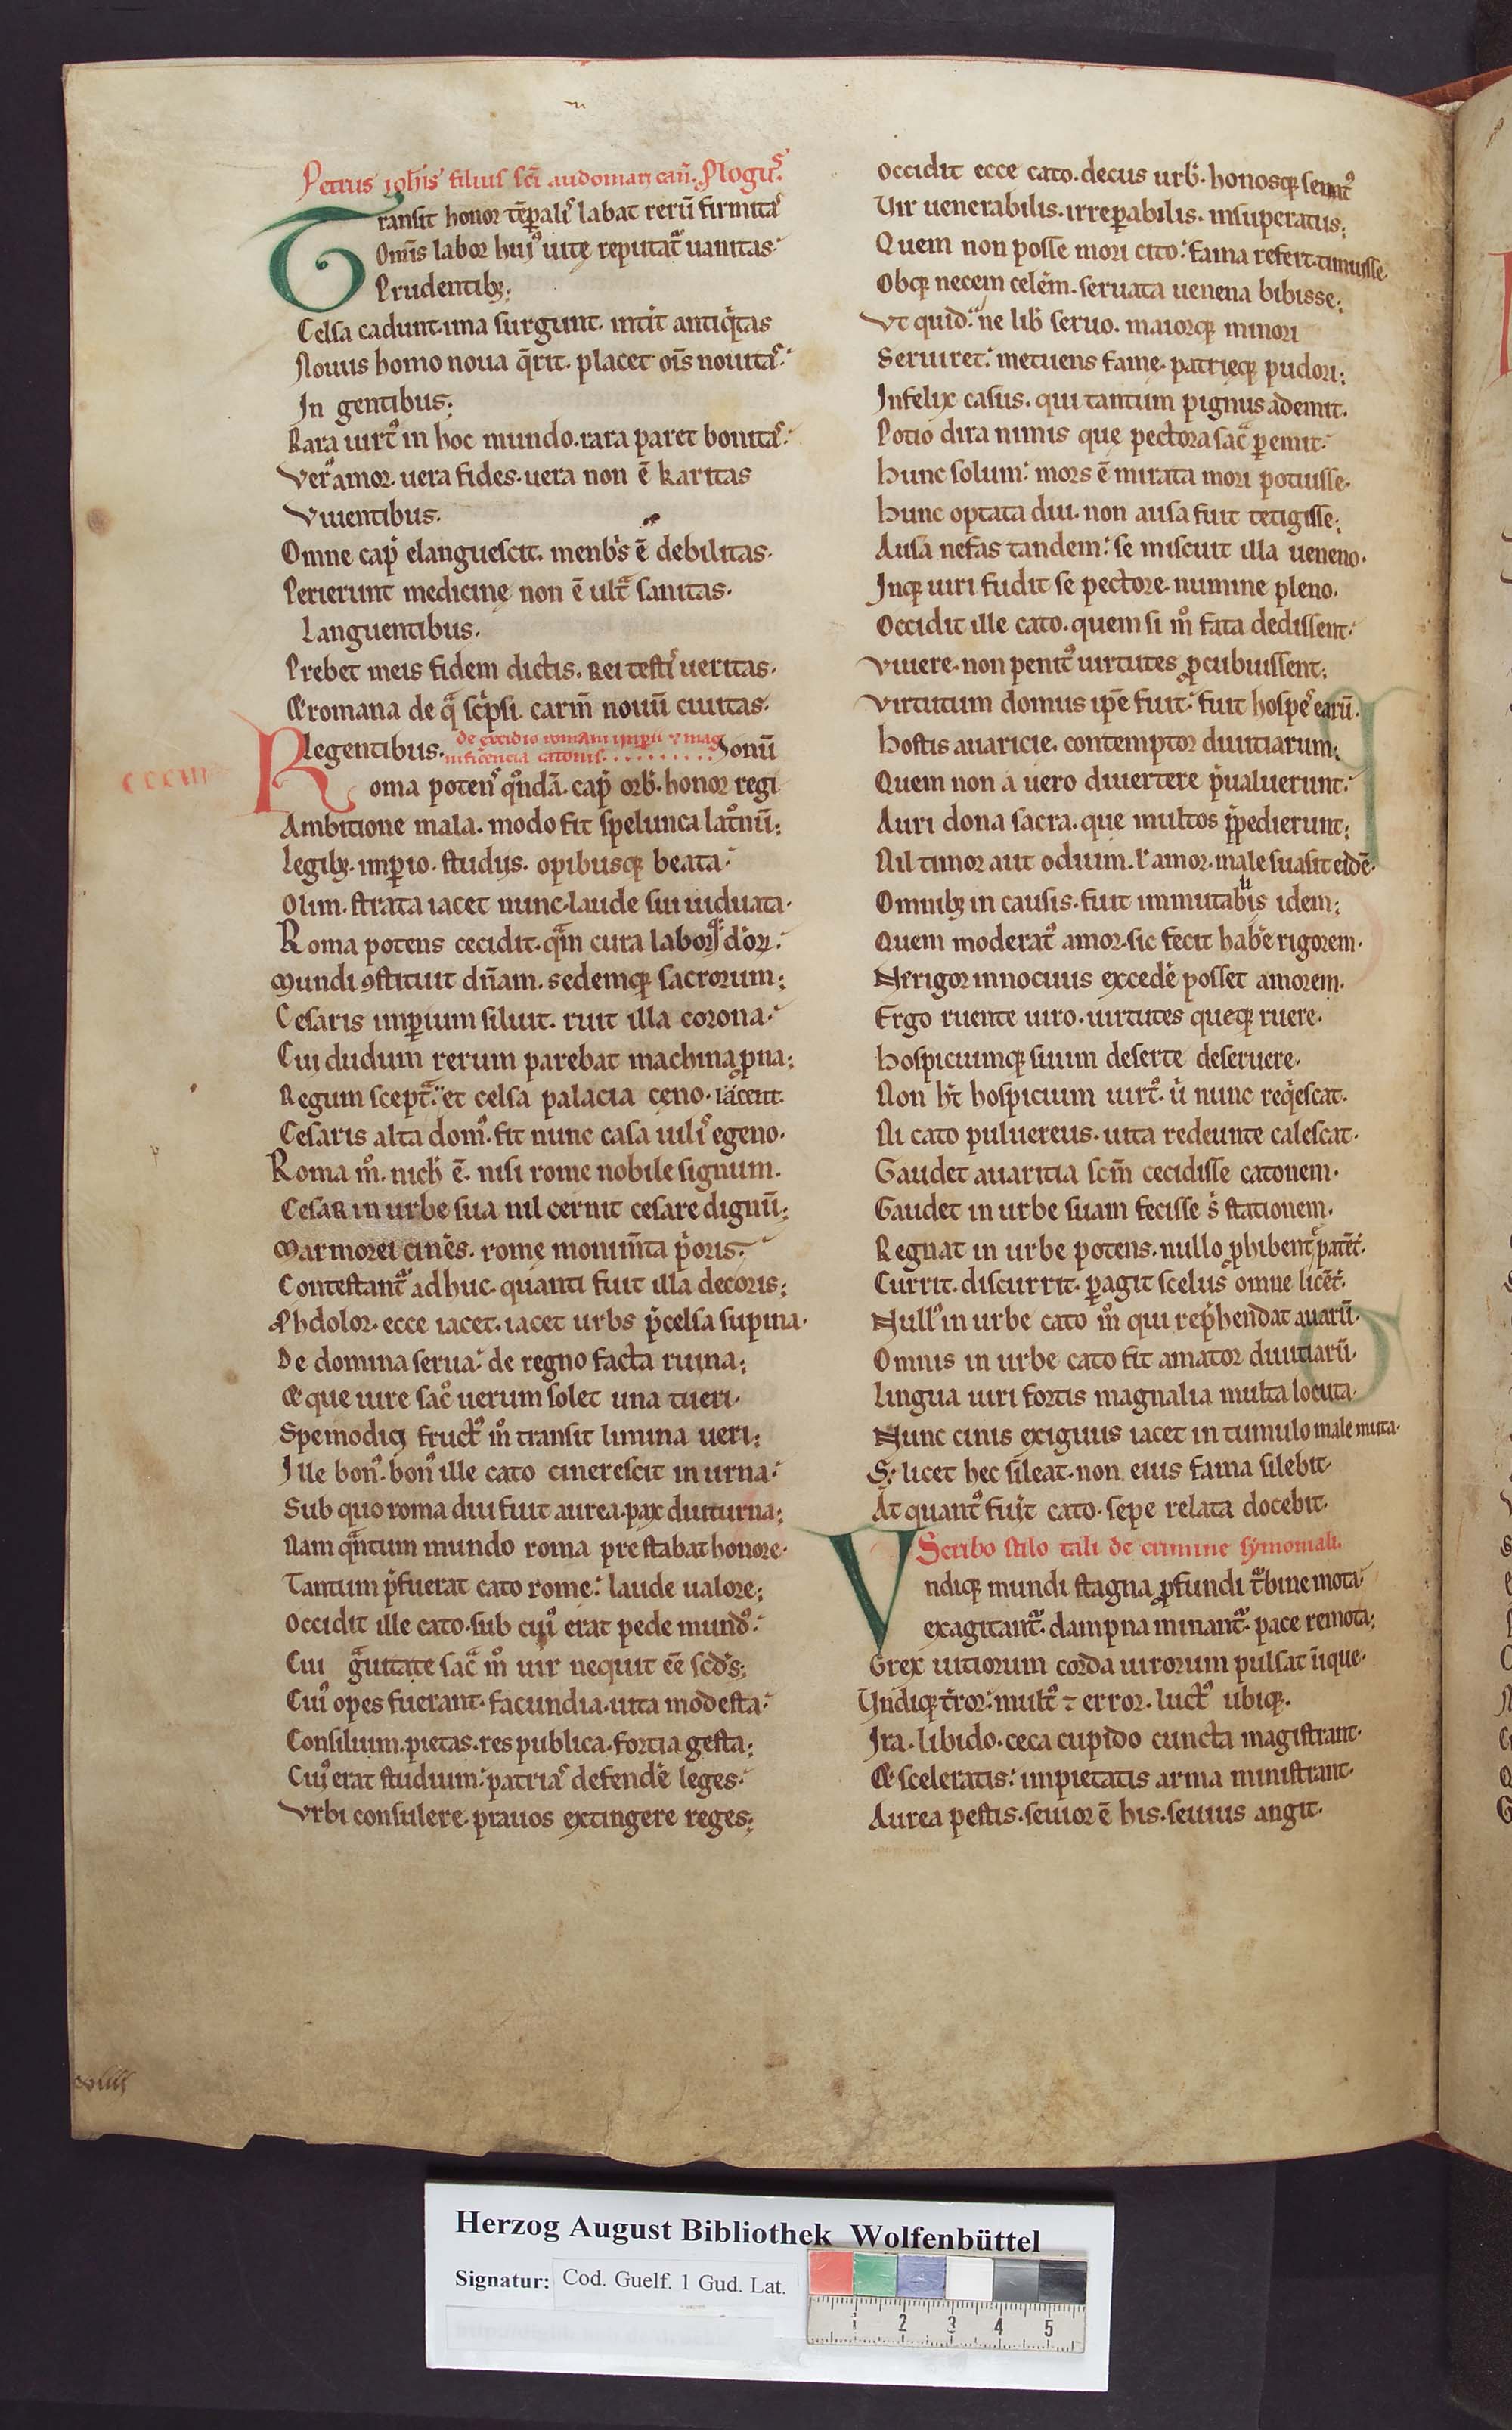 Petrus ioh̅is filius sc̅i audomari can̅. Plogus.
Transit honor te̅p̲alis labat reru̅ firmitas
Om̅is labor huiꝰ uite̜ reputat᷑ uanitas.
Prudentib;
Celsa cadunt. ima surgunt. int̅it antiq̇tas
Nouus homo noua q̅rit. placet oı̅s nouitas.
In gentibus;
Rara uirtꝰ in hoc mundo. rara paret bonitas.
Verꝰ amor. uera fides. uera non e̅ karitas
Viuentibus.
Omne cap̉ elanguescit. menb̅s e̅ debilitas.
Perierunt medicine̜ non e̅ ult̅ᵃ sanitas.
Languentibus.
Prebet meis fidem dictis. rei testis ueritas.
Et romana de qᵃ sc̅psi. carm̅ nouu̅ ciuitas.
Legentibus. de excidio romani imp̲ii ⁊ mag
nificencia catonis. onu̅
Roma potens qͦnda̅. cap̉ orb̅. honor regi
Ambitione mala. modo fit spelunca latͦnu̅;
Legib;. imp̲io. studiis. opibusq; beata.
Olim. strata iacet nunc. laude sui uiduata.
Roma potens cecidit. qᵃm cura laborq; d̅oꝝ.
Mundi ꝯstituit dn̅am. sedemq; sacrorum;
Cesaris imp̲ium siluit. ruit illa corona.
Cui dudum rerum parebat machina ꝓna;
Regum sceptᵃ. et celsa palacia ceno. iacent.
Cesaris alta domꝰ. fit nunc casa uilis egeno.
Roma mͦ. nich̅ e̅. nisi rome nobile signum.
Cesar in urbe sua nil cernit cesare dignu̅;
Marmorei cine̅s. rome̜ monim̅ta p̅oris.
Contestant᷑ adhuc. quanti fuit illa decoris;
Ah dolor. ecce iacet. iacet urbs p̅celsa supina.
De domina serua. de regno facta ruina;
Et que iure sacͦ uerum solet una tueri.
Spe modici fructꝰ mͦ transit limina ueri;
Ille bonꝰ. bonꝰ ille cato cinerescit in urna.
Sub quo roma diu fuit aurea. pax diuturna;
Nam qᵃntum mundo roma prestabat honore.
Tantum p̅fuerat cato rome. laude ualore;
Occidit ille cato. sub cuiꝰ erat pede mundꝰ.
Cui gᵃuitate sacᵃ mͦ uir nequit e̅e sc̅ds;
Cuiꝰ opes fuerant. facundia. uita modesta.
Consilium. pietas. res publica. fortia gesta;
Cuiꝰ erat studium. patrias defende̅ leges.
Vrbi consulere. prauos extingere reges;
Occidit ecce cato. decus urb̅. honosq; senatꝰ
Vir uenerabilis. irrep̲abilis. insuperatus;
Quem non posse mori cito. fama refert. timuisse.
Obq; necem cele̅m. seruata uenena bibisse;
Vt quid. ne lib̅ seruo. maiorq; minori
Seruiret. metuens fame. patrie̜q; pudori;
Infelix casus. qui tantum pignus ademit.
Potio dira nimis que pectora sacᵃ p̲emit.
Hunc solum. mors e̅ mirata mori potuisse.
Hunc optata diu. non ausa fuit tetigisse;
Ausa nefas tandem. se miscuit illa ueneno.
Inq; uiri fudit se pectore. numine pleno.
Occidit ille cato. quem si mͦ fata dedissent.
Viuere. non penitꝰ uirtutes ꝓcubuissent;
Virtutum domus ip̅e fuit. fuit hospes earu̅.
Hostis auaricie. contemptor diuitiarum;
Quem non a uero diuertere p̅ualuerunt.
Auri dona sacra. que multos p̅pedierunt;
Nil timor aut odium. l̓ amor. male suasit eide̅.
Omnib; in causis. fuit immutabilis idem;
Quem moderatꝰ amor. sic fecit hab̅e rigorem.
Ne rigor innocuus excede̅ posset amorem.
Ergo ruente uiro. uirtutes queq; ruere.
Hospiciumq; suum deserte deseruere.
Non h̅t hospicium uirtꝰ. u̇ nunc req̇escat.
Ni cato puluereus. uita redeunte calescat.
Gaudet auaritia scm̅ cecidisse catonem.
Gaudet in urbe suam fecisse ṡ stationem.
Regnat in urbe potens. nullo ꝓhibente pate̅t.
Currit. discurrit. p̲agit scelus omne lice̅t.
Nullꝰ in urbe cato mͦ qui rep̅hendat auaru̅.
Omnis in urbe cato fit amator diuitiaru̅.
Lingua uiri fortis magnalia multa locuta.
Nunc cinis exiguus iacet in tumulo male muta.
S; licet hec sileat. non eius fama silebit.
At quantꝰ fuı̇t cato. sepe relata docebit.
Scribo stilo tali de crimine symoniali.
Vndiq; mundi stagna ꝓfundi t᷑bine mota.
exagitant᷑. dampna minant᷑. pace remota;
Grex uitiorum corda uirorum pulsat u̅ique.
Vndiq; t̅ror. multꝰ ⁊ error. luctꝰ ubiq;.
Ira. libido. ceca cupido cuncta magistrant.
Et sceleratis. impietatis arma ministrant.
Aurea pestis. seuior e̅ his. seuius angit.
Herzog August Bibliothek Wolfenbüttel
Signatur: Cod. Guelf. 1 Gud. Lat.
1 2 3 4 5